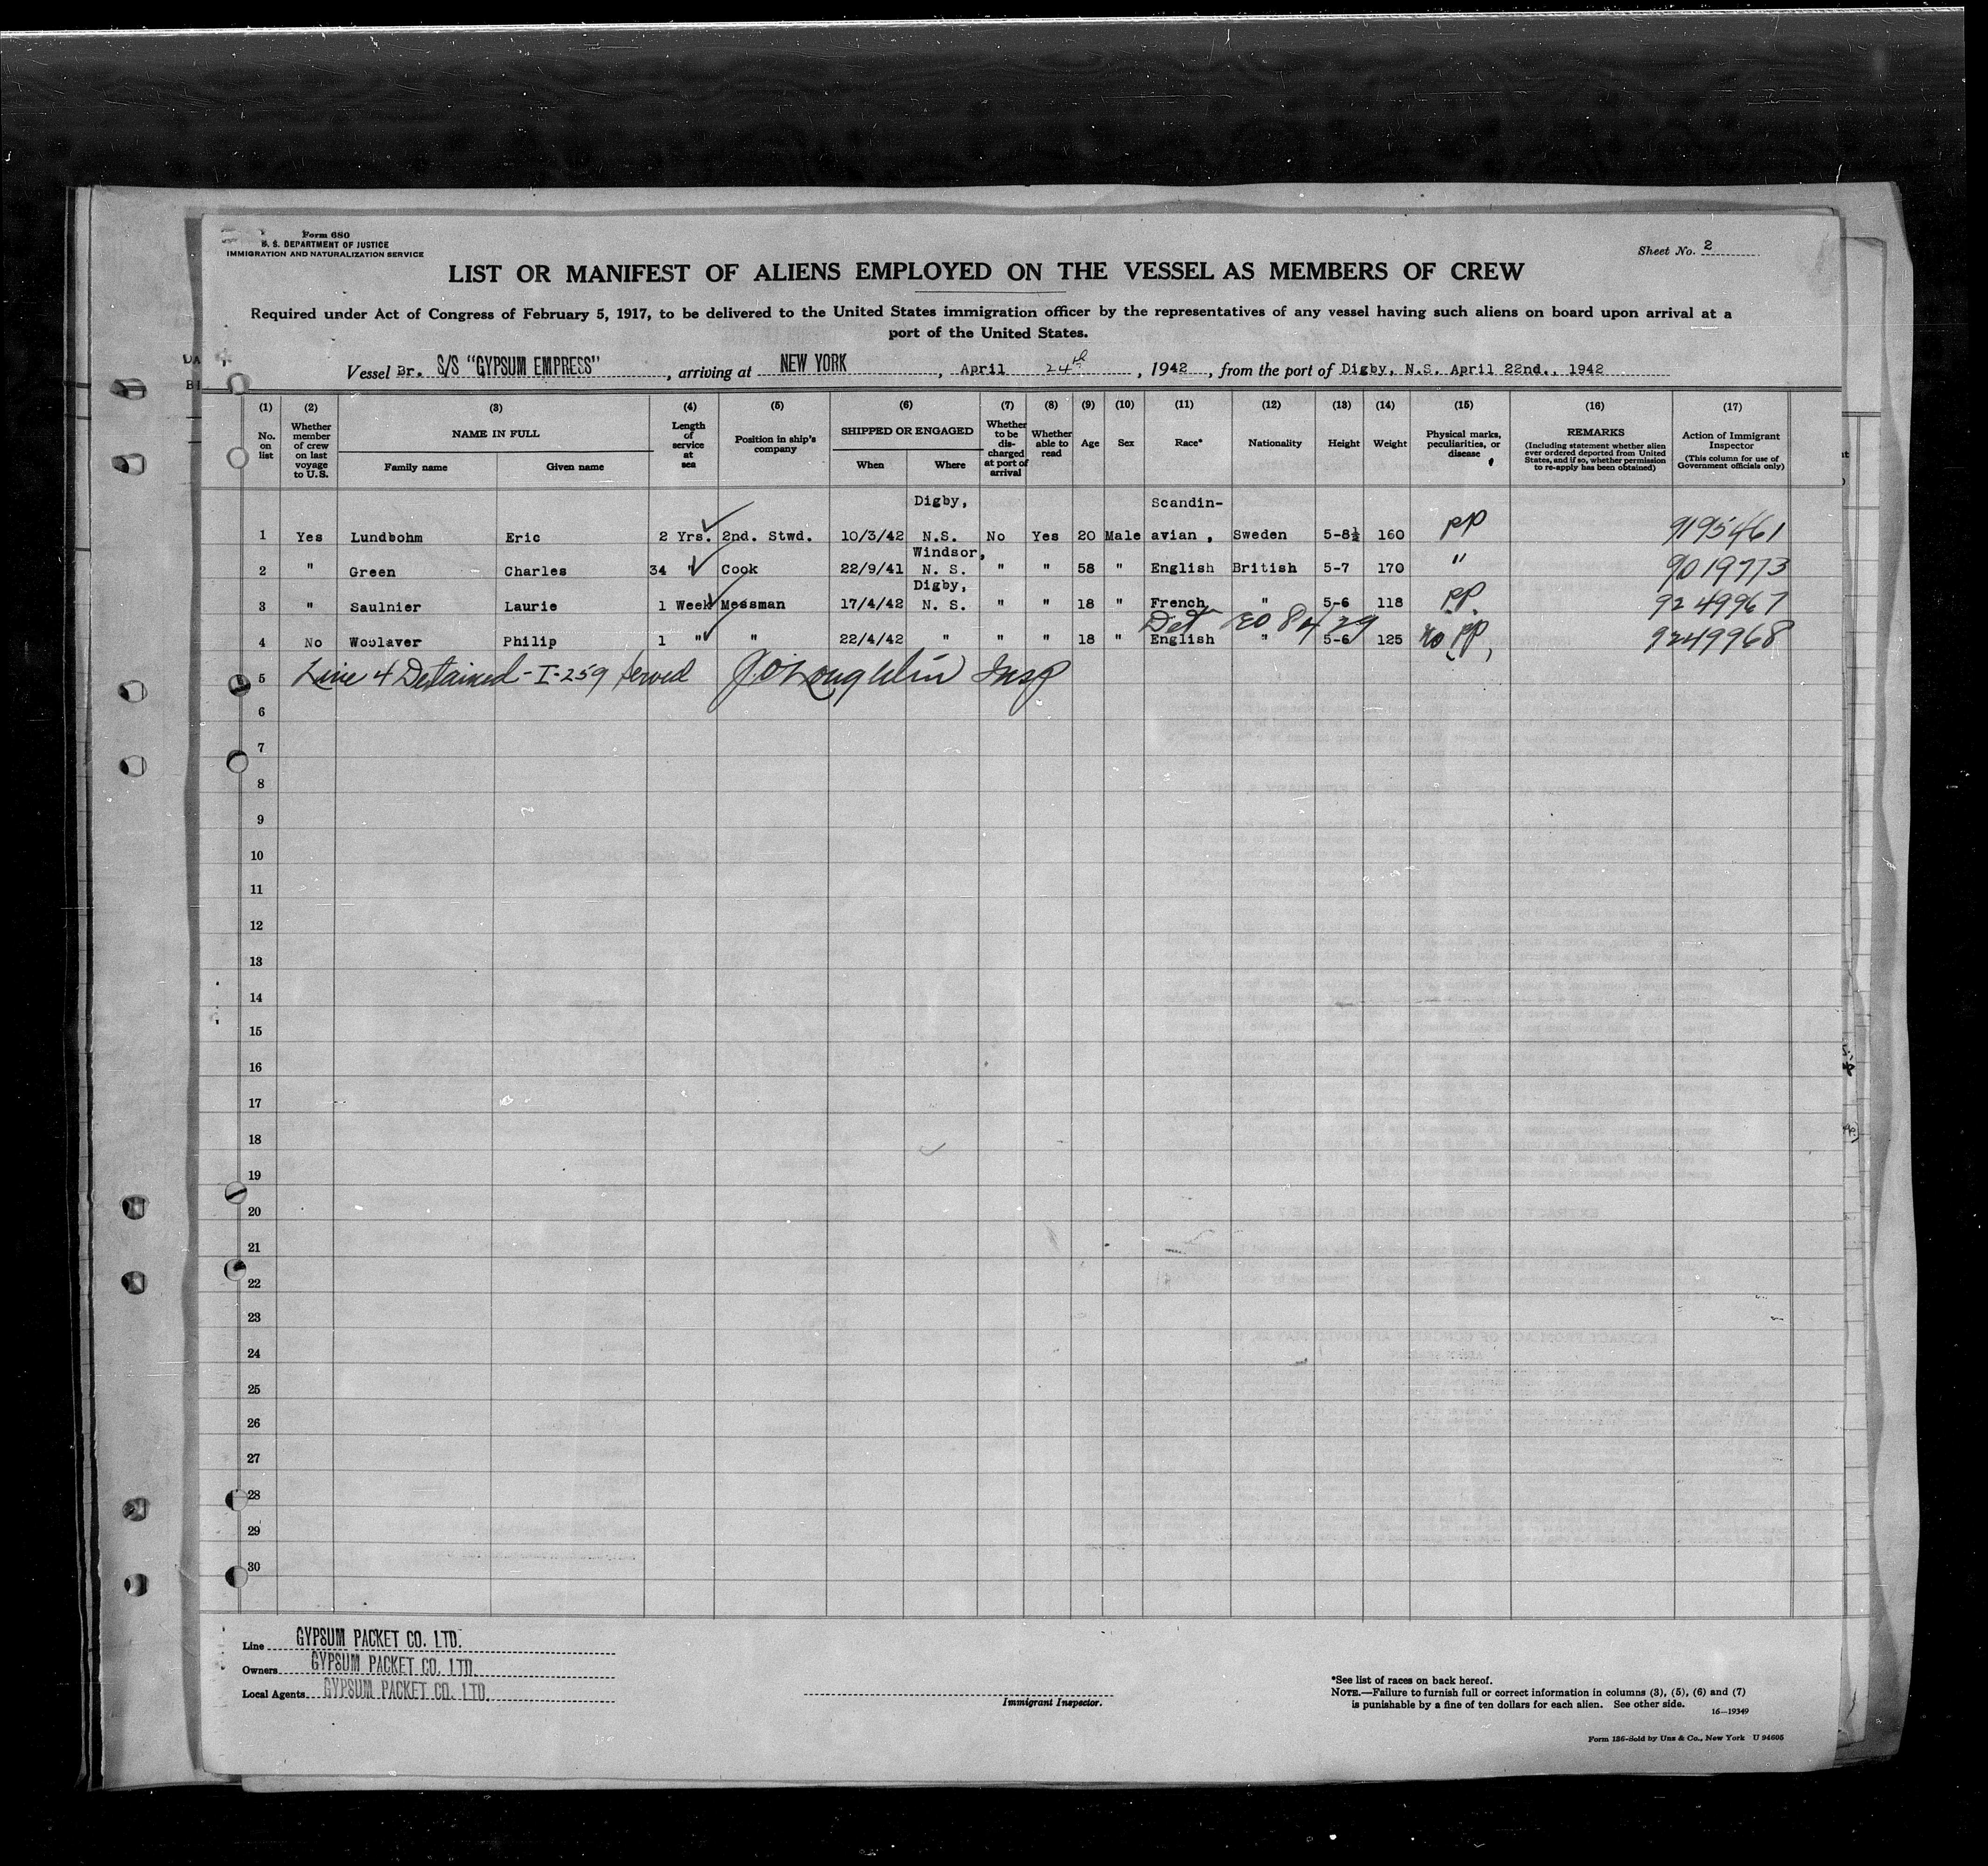 Form 680
U. S. DEPARTMENT OF JUSTICE
IMMIGRATION AND NATURALIZATION SERVICE
Sheet No. 2
LIST OR MANIFEST OF ALIENS EMPLOYED ON THE VESSEL AS MEMBERS OF CREW
Required under Act of Congress of February 5, 1917, to be delivered to the United States immigration officer by the representatives of any vessel having such aliens on board upon arrival at a
port of the United States.
Vessel Br. S/S "GYPSUM EMPRESS", arriving at NEW YORK, April 24th, 1942, from the port of Digby, N.S. April 22nd., 1942
(1) (2) (3) (4) (5) (6) (7) (8) (9) (10) (11) (12) (13) (14) (15) (16) (17)
No. on list
Whether member of crew on last voyage to U.S.
NAME IN FULL
Family name
Given name
Length of service at sea
Position in ship's company
SHIPPED OR ENGAGED
When
Where
Whether to be discharged at port of arrival
Whether able to read
Age
Sex
Race*
Nationality
Height
Weight
Physical marks, peculiarities, or disease
REMARKS
(Including statement whether alien ever ordered deported from United States, and if so, whether permission to re-apply has been obtained)
Action of Immigrant Inspector
(This column for use of Government officials only)
Digby, Scandin-
1 Yes Lundbohm Eric 2 Yrs. 2nd. Stwd. 10/3/42 N.S. No Yes 20 Male avian, Sweden 5-8½ 160 PP 9195461
Windsor,
2 " Green Charles 34 " Cook 22/9/41 N. S. " " 58 " English British 5-7 170 " 9019773
Digby,
3 " Saulnier Laurie 1 Week Messman 17/4/42 N. S. " " 18 " French " 5-6 118 PP 9249967
Det 4/29
4 No Woolaver Philip 1 " " 22/4/42 " " " 18 " English " 5-6 125 no PP 9249968
5 Line 4 Detained - I-259 served J. O'Loughlin Insp
6
7
8
9
10
11
12
13
14
15
16
17
18
19
20
21
22
23
24
25
26
27
28
29
30
Line GYPSUM PACKET CO. LTD.
Owners GYPSUM PACKET CO. LTD.
Local Agents GYPSUM PACKET CO. LTD.
Immigrant Inspector.
*See list of races on back hereof.
NOTE.—Failure to furnish full or correct information in columns (3), (5), (6) and (7)
is punishable by a fine of ten dollars for each alien. See other side.
16—19349
Form 136-Sold by Unz & Co., New York U 94605